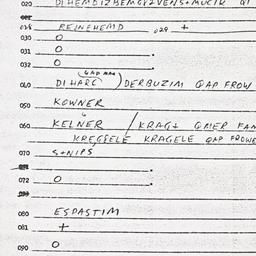 020 DI HEMD IZ BEM GRZVENS+MUCIK QI
028 REINEHEMD 029 +
030 O
031 O
032 O
GAD MAN
040 DI HARC) DERBUZIM QAP FROW
050 KOWNER
060 KELNER / KRAG+ QMER FAM
KREGSELE KRAGELE QAP FROWE
070 S+NIPS
072 O
080 ESPASTIM
081 +
090 O